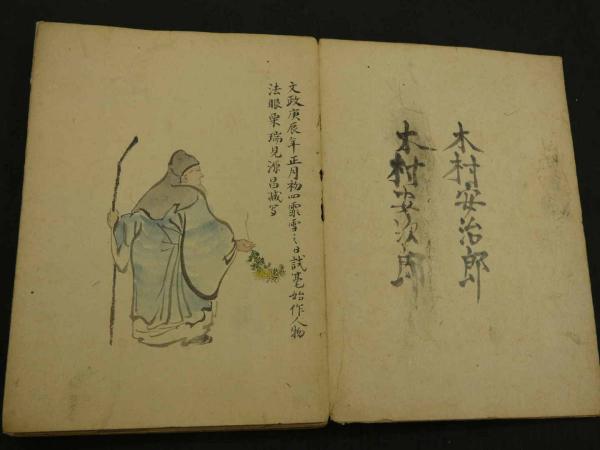 木村安治郎
木村安次郎
文政庚辰年正月初四霰雪之日試毫始作人物
法眼栗瑞見源昌臧写